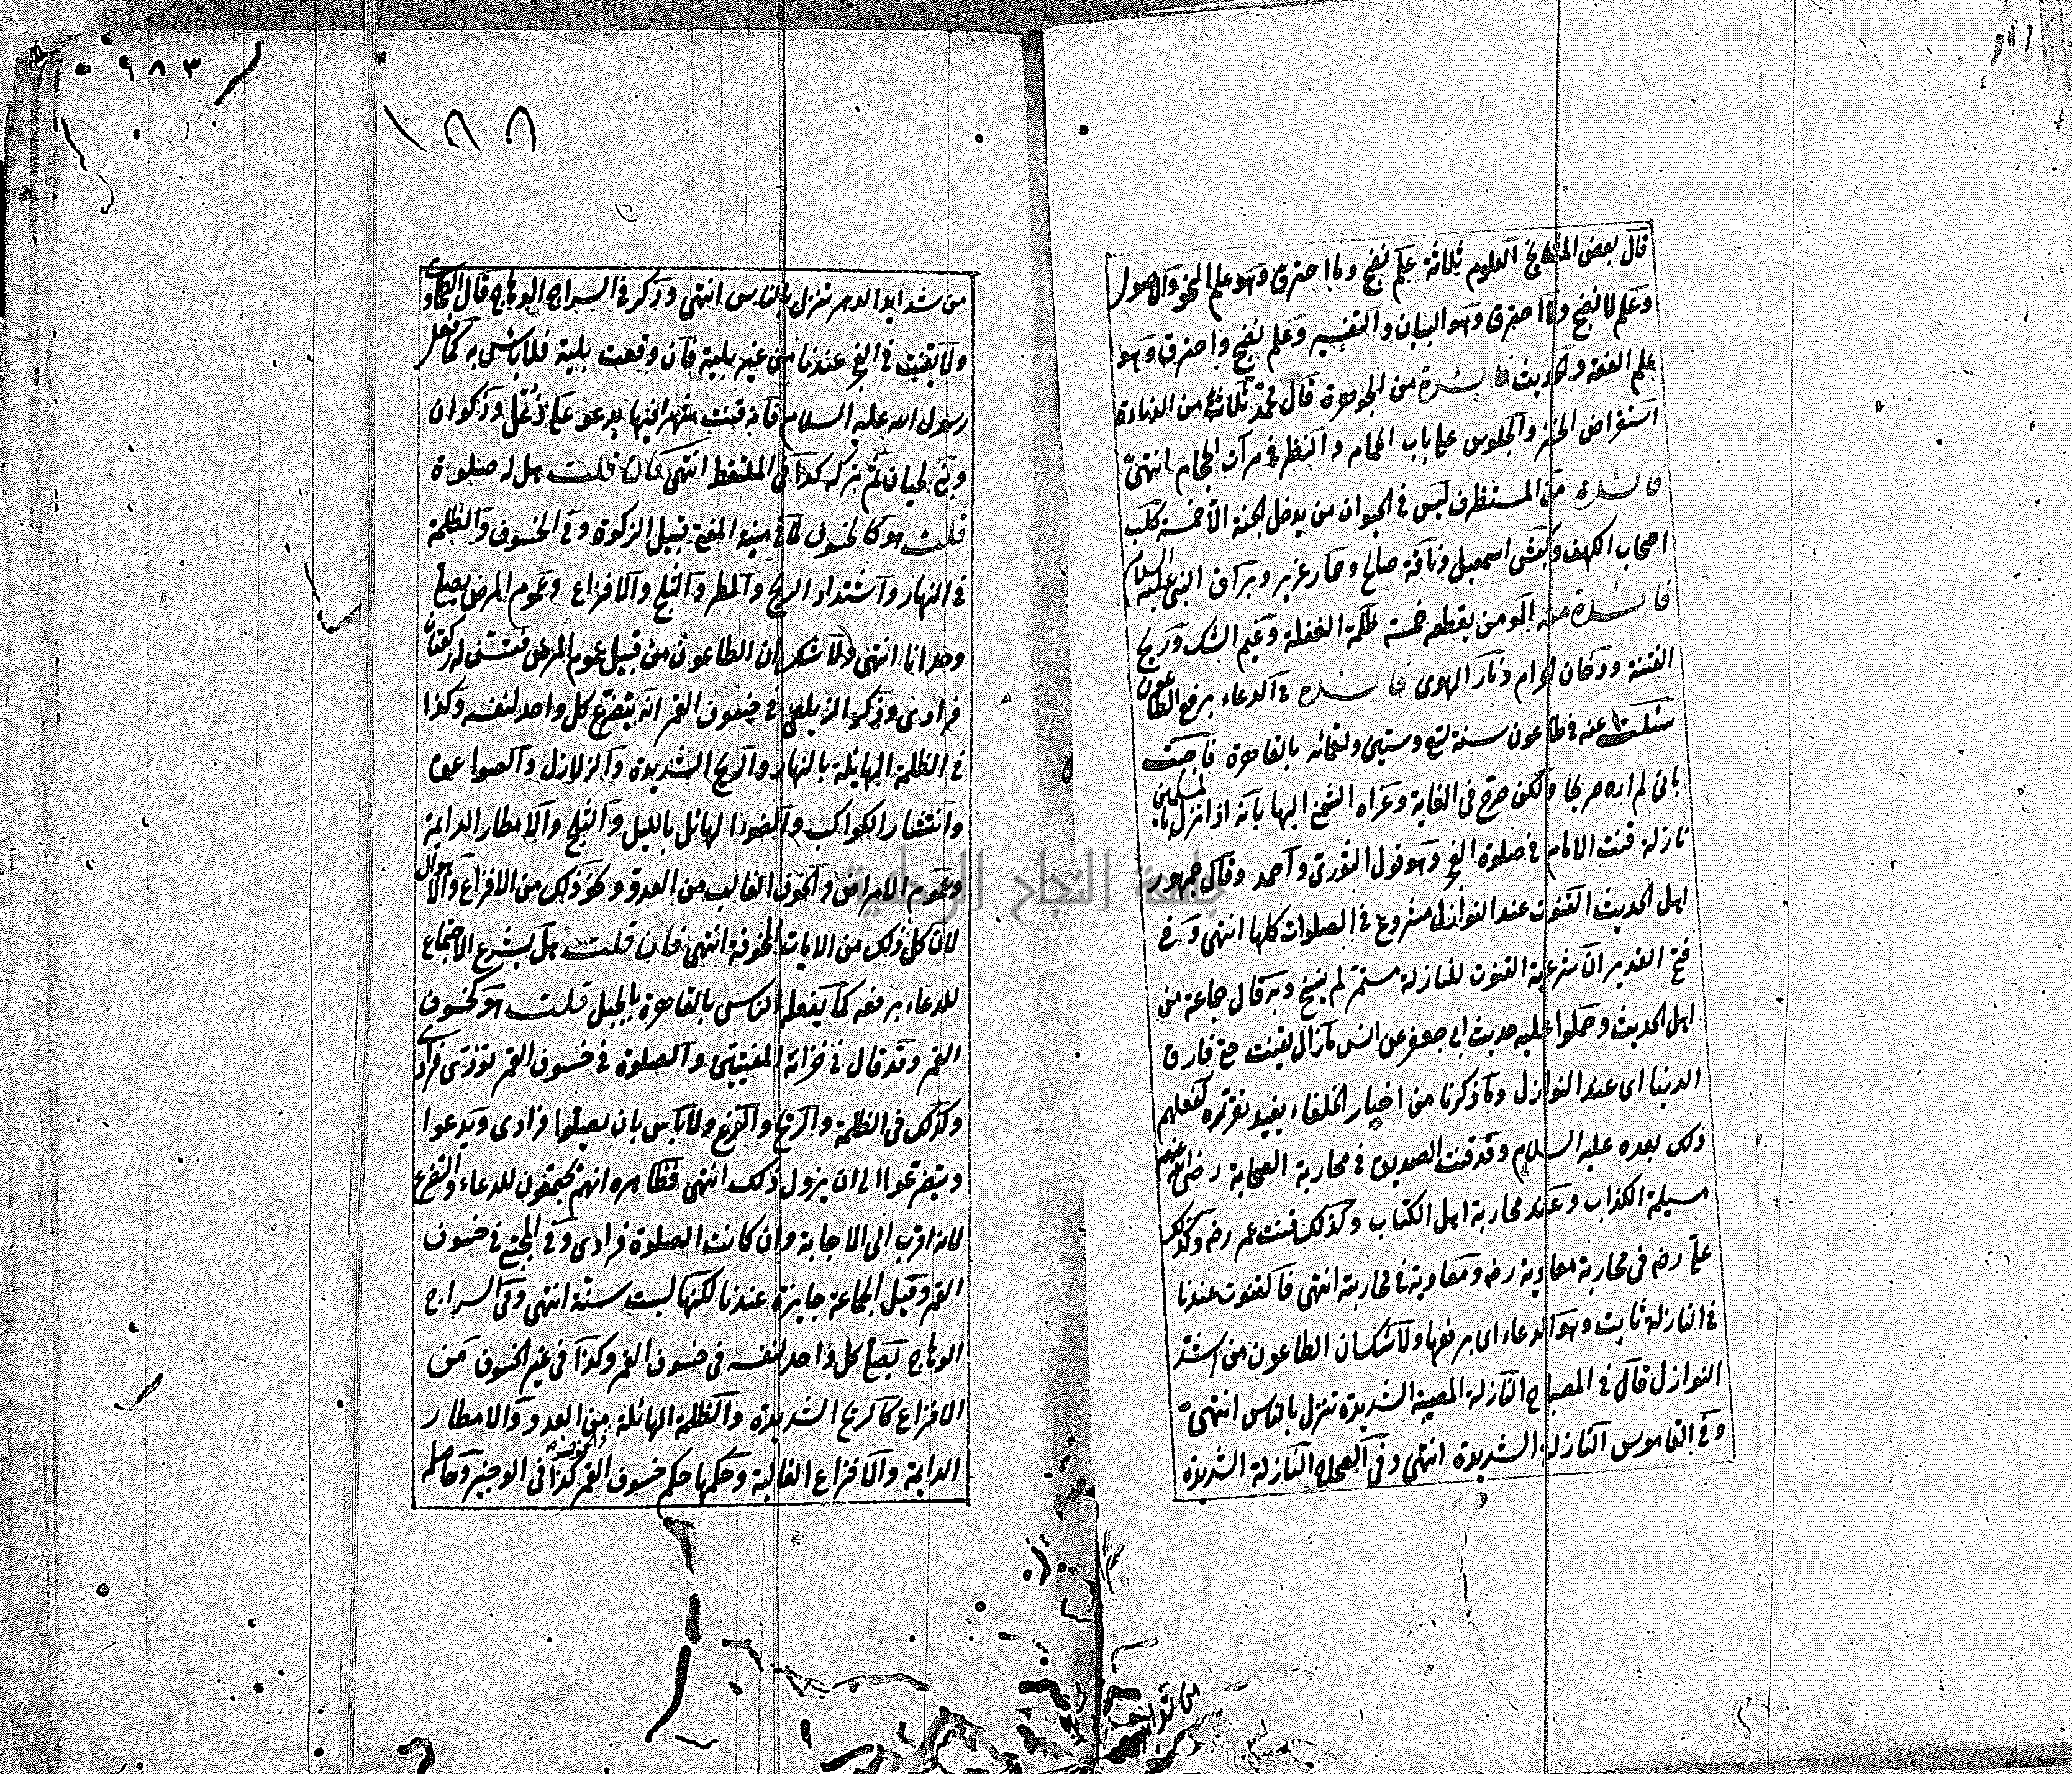 قال بعض المشايخ العلوم ثلاثة علم نضج وما احترق وهو علم النحو والاصول
وعلم لا نضج ولا احترق وهو البيان والتفسير وعلم نضج واحترق وهو
علم الفقه والحديث فائدة من الجوهرة قال محمد ثلاث من الدناءة
استقراض الخبز والجلوس على باب الحمام والنظر في مرآت الحجام انتهى
فائدة من المستظرف ليس في الحيوان من يدخل الجنة الا خمسة كلب
اصحاب الكهف وكبش اسمعيل وناقة صالح وحمار عزير وبراق النبي عليه السلام
فائدة منه المومن يقطعه خمسة ظلمة الغفلة وغيم الشك وريح
الفتنة ودخان الحرام ونار الهوى فائدة في الدعاء برفع الطاعون
سئلت عنه في طاعون سنة تسع وستين وتسعمائه بالقاهرة فاجبت
باني لم اره صريحا ولكن صرح في الغاية وعزاه الشمني اليها بانه اذا نزل بالمسلمين
نازلة قنت الامام في صلوة الفجر وهو قول الثوري واحمد وقال جمهور
اهل الحديث القنوت عند النوازل مشروع في الصلوات كلها انتهى وفي
فتح القدير ان شرعية القنوت للنازلة مستمر لم ينسخ وبه قال جماعة من
اهل الحديث وحملوا عليه حديث ابي جعفر عن انس ما زال يقنت حتى فارق
الدنيا اى عند النوازل وما ذكرنا من اخبار الخلفاء يفيد تقرره لفعلهم
ذلك بعده عليه السلام وقد قنت الصديق في محاربة الصحابة رضى الله عنهم
مسيلمة الكذاب وعند محاربة اهل الكتاب وكذلك قنت عمر رضه وكذلك
على رضه في محاربة معاوية رضه ومعاوية في محاربته انتهى فالقنوت عندنا
في النازلة ثابت وهو الدعاء اى برفعها ولا شك ان الطاعون من اشد
النوازل قال في المصباح النازلة المصيبة الشديدة تنزل بالناس انتهى
وفي القاموس النازلة الشديدة انتهى وفي الصحاح النازلة الشديدة
٩٨٣
١٨٨
من شدايد الدهر تنزل بالناس انتهى وذكر في السراج الوهاج قال الطحاوى
ولا يقنت في الفجر عندنا من غير بلية فان وقعت بلية فلا باس به كما فعل
رسول الله عليه السلام فانه قنت شهرا فيها يدعو على رعل وذكوان
وبني لحيان ثم تركه كذا في الملتقط انتهى فان قلت هل له صلوة
قلت هو كالخسوف لما في منية المفتي قبيل الزكوة وفي الخسوف والظلمة
في النهار واشتداد الريح والمطر والثلج والافزاع وعموم المرض يصلى
وحدانا انتهى ولا شك ان الطاعون من قبيل عموم المرض فتسن له ركعتان
فرادى وذكر الزيلعي في خسوف القمر انه يتضرع كل واحد لنفسه وكذا
في الظلمة الهائلة بالنهار والريح الشديدة والزلازل والصواعق
وانتشار الكواكب والضوء الهائل بالليل والثلج والامطار الدايمة
وعموم الامراض والخوف الغالب من العدو ونحو ذلك من الافزاع والاهوال
لان كل ذلك من الايات المخوفة انتهى فان قلت هل يشرع الاجتماع
للدعاء برفعه كما يفعله الناس بالقاهرة بالجبل قلت هو كخسوف
القمر وقد قال في خزانة المفتيين والصلوة في خسوف القمر تؤدى فرادى
وكذلك في الظلمة والريح والفزع ولا باس بان يصلوا فرادى ويدعوا
ويتضرعوا الى ان يزول ذلك انتهى فظاهره انهم يجتمعون للدعاء والتضرع
لانه اقرب الى الاجابة وان كانت الصلوة فرادى وفي المجتبى في خسوف
القمر وقيل الجماعة جايزة عندنا لكنها ليست سنة انتهى وفي السراج
الوهاج يصلى كل واحد لنفسه في خسوف القمر وكذا في غير الخسوف من
الافزاع كالريح الشديدة والظلمة الهائلة من العدو والامطار
الدايمة والافزاع الغالبة وحكمها حكم خسوف القمر كذا في الوجيز وحاصله